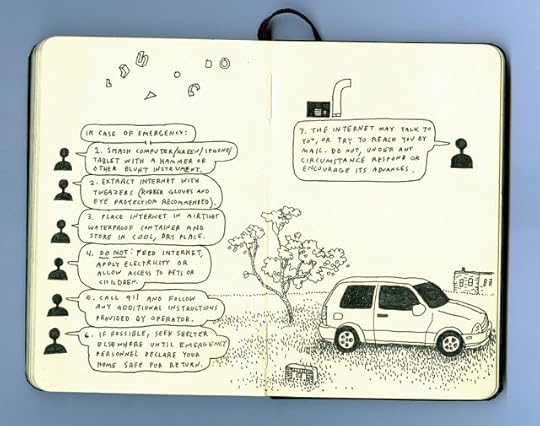 IN CASE OF EMERGENCY:
1. SMASH COMPUTER/SCREEN/IPHONE/
TABLET WITH A HAMMER OR
OTHER BLUNT INSTRUMENT.
2. EXTRACT INTERNET WITH
TWEAZERS (RUBBER GLOVES AND
EYE PROTECTION RECOMMENDED).
3. PLACE INTERNET IN AIRTIGHT
WATERPROOF CONTAINER AND
STORE IN COOL, DRY PLACE.
4. DO NOT: FEED INTERNET,
APPLY ELECTRICITY OR
ALLOW ACCESS TO PETS OR
CHILDREN.
5. CALL 911 AND FOLLOW
ANY ADDITIONAL INSTRUCTIONS
PROVIDED BY OPERATOR.
6. IF POSSIBLE, SEEK SHELTER
ELSEWHERE UNTIL EMERGENCY
PERSONNEL DECLARE YOUR
HOME SAFE FOR RETURN.
7. THE INTERNET MAY TALK TO
YOU, OR TRY TO REACH YOU BY
MAIL. DO NOT, UNDER ANY
CIRCUMSTANCE RESPOND OR
ENCOURAGE ITS ADVANCES.